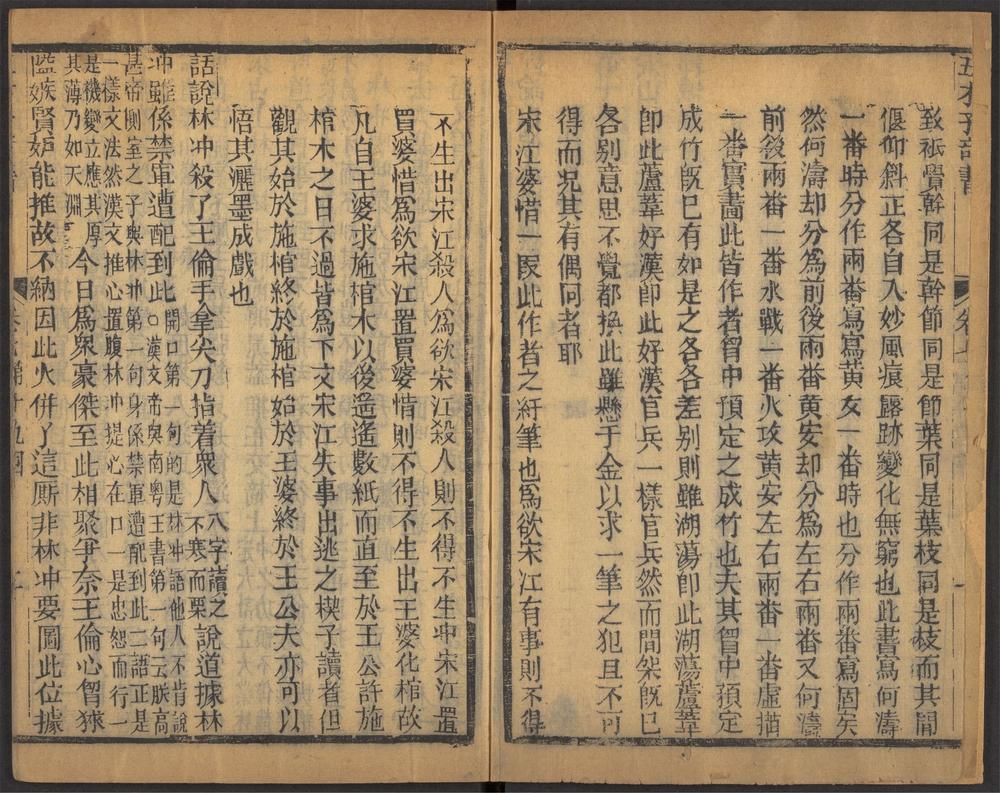 致衹覺幹同是幹節同是節葉同是葉枝同是枝而其間
偃仰斜正各自入妙風痕露跡變化無窮也此書寫何濤
一番時分作兩番寫寫黃安一番時也分作兩番寫固矣
然何濤却分為前後兩番黃安却分為左右兩番又何濤
前後兩番一番水戰一番火攻黃安左右兩番一番虛描
一番實畫此皆作者胷中預定之成竹也夫其胷中預定
成竹既已有如是之各各差别則雖湖蕩即此湖蕩蘆葦
即此蘆葦好漢即此好漢官兵一樣官兵然而間架既已
各别意思不覺都換此雖懸千金以求一筆之犯且不可
得而況其有偶同者耶
宋江婆惜一叚此作者之紆筆也為欲宋江有事則不得
不生出宋江殺人為欲宋江殺人則不得不生出宋江置
買婆惜為欲宋江置買婆惜則不得不生出王婆化棺故
凡自王婆求施棺木以後遥遥數紙而直至於王公許施
棺木之日不過皆為下文宋江失事出逃之楔子讀者但
觀其始於施棺終於施棺始於王婆終於王公夫亦可以
悟其灑墨成戲也
話說林冲殺了王倫手拿尖刀指着衆人八字讀之不寒而栗說道據林
冲雖係禁軍遭配到此開口第一句的是林冲語他人不肯說○漢文帝與南粵王書第一句云朕高
皇帝側室之子與林冲第一句身係禁軍遭配到此二語正是
一樣文法然漢文推心置腹林冲提心在口一是忠恕而行一
是機變立應其厚
其薄乃如天淵 今日為衆豪傑至此相聚爭奈王倫心胷狹
隘嫉賢妒能推故不納因此火併了這厮非林冲要圖此位據